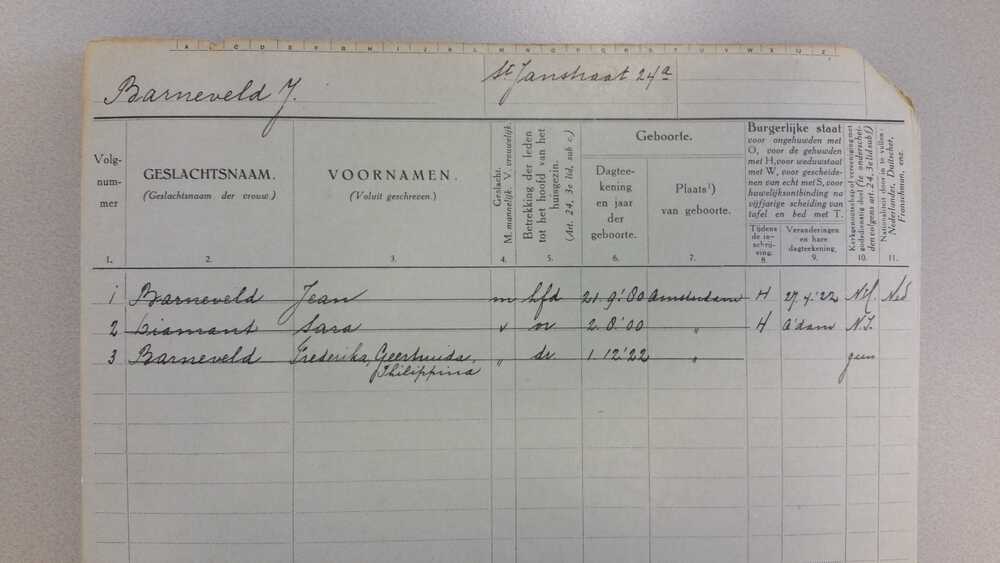 A B C D E F G H I J K L M N O P Q R S T U V W X IJ Z
Barneveld J.
St Janstraat 24a
Volg-
num-
mer
GESLACHTSNAAM.
(Geslachtsnaam der vrouw)
VOORNAMEN.
(Voluit geschreven.)
Geslacht.
M. mannelijk. V. vrouwelijk.
Betrekking der leden
tot het hoofd van het
huisgezin.
(Art. 24, 3e lid, sub c.)
Geboorte.
Dagtee-
kening
en jaar
der
geboorte.
Plaats¹)
van geboorte.
Burgerlijke staat
voor ongehuwden met
O, voor de gehuwden
met H, voor weduwstaat
met W, voor gescheide-
nen van echt met S, voor
huwelijksontbinding na
vijfjarige scheiding van
tafel en bed met T.
Tijdens
de in-
schrij-
ving.
Veranderingen
en hare
dagteekening.
Kerkgenootschap of vereeniging met
godsdienstig doel (te onderschei-
den volgens art. 24, 3e lid sub f)
Nationaliteit door in te vullen:
Nederlander, Duitscher,
Franschman, enz.
1. 2. 3. 4. 5. 6. 7. 8. 9. 10. 11.
1 Barneveld Jean m hfd 21.9.'00 Amsterdam H 27.4.'22 Ned
2 Diamant Sara v vr 2.8.'00 " H A'dam N.I.
3 Barneveld Frederika, Geertruida, " dr 1.12.'22 " geen
Philippina